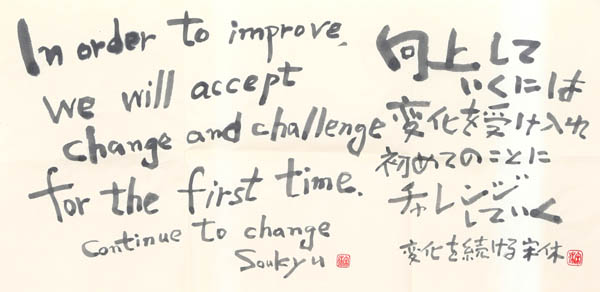 In order to improve,
we will accept
change and challenge
for the first time.
Continue to change
Soukyu
向上して
いくには
変化を受け入れ
初めてのことに
チャレンジ
していく
変化を続ける宋休